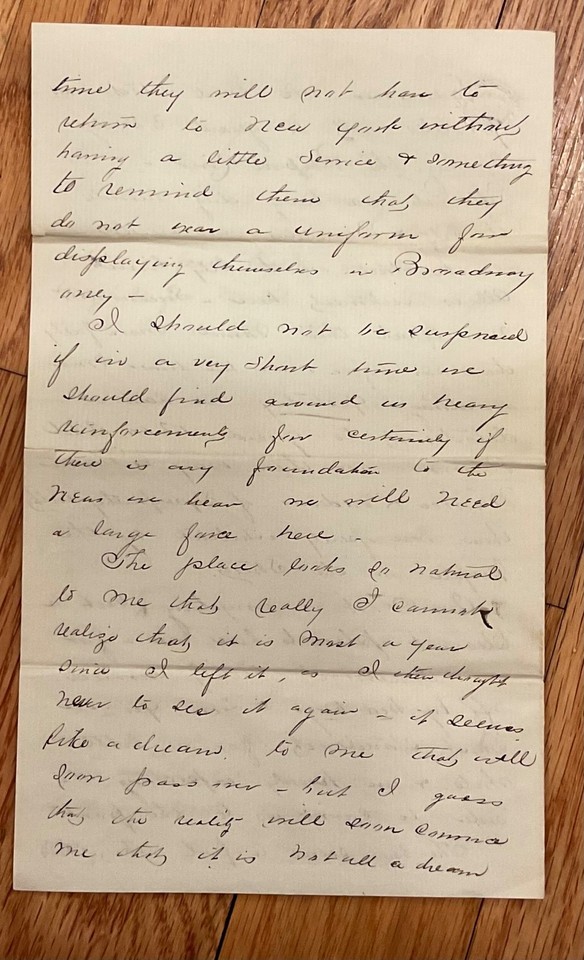 time they will not have to
return to New York without
having a little Service & Something
to remind them that they
do not wear a uniform for
displaying themselves in Broadway
only –
I should not be surprised
if in a very Short time we
should find around us heavy
reinforcements for certainly if
there is any foundation to the
News we hear we will need
a large force here –
The place looks so natural
to me that really I cannot
realize that it is most a year
since I left it, as I then thought
never to see it again – it seems
like a dream to me that will
soon pass over – but I guess
that the reality will soon convince
me that it is not all a dream